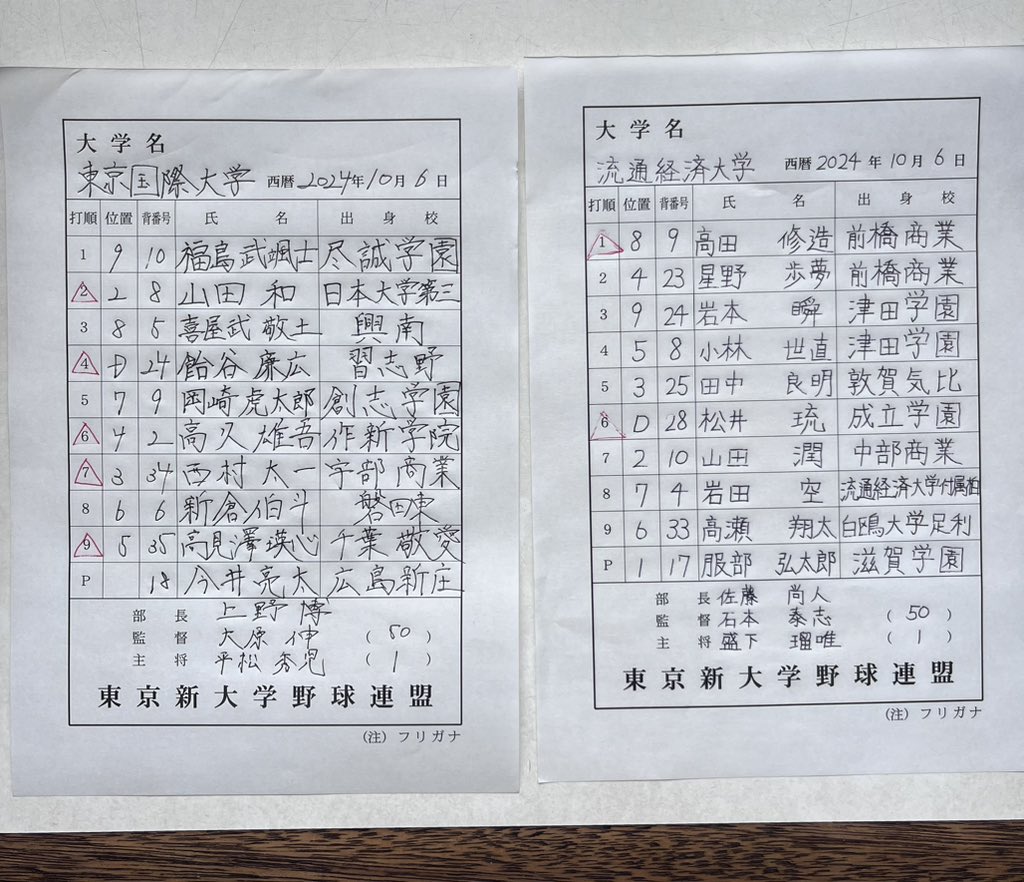 大学名
東京国際大学 西暦 2024年10月6日
打順 位置 背番号 氏 名 出 身 校
1 9 10 福島武颯士 尽誠学園
2 2 8 山田 和 日本大学第三
3 8 5 喜屋武 敬士 興南
4 D 24 飴谷 廉広 習志野
5 7 9 岡崎虎太郎 創志学園
6 4 2 高久 雄吾 作新学院
7 3 34 西村 太一 宇部商業
8 6 6 新倉伯斗 磐田東
9 5 35 高見澤瑛心 千葉敬愛
P 18 今井亮太 広島新庄
部 長 上野 博
監 督 大原 伸 (50)
主 将 平松 秀児 (1)
東京新大学野球連盟
(注) フリガナ
大学名
流通経済大学 西暦 2024年10月6日
打順 位置 背番号 氏 名 出 身 校
1 8 9 高田 修造 前橋商業
2 4 23 星野 歩夢 前橋商業
3 9 24 岩本 瞬 津田学園
4 5 8 小林 世直 津田学園
5 3 25 田中 良明 敦賀気比
6 D 28 松井 琉 成立学園
7 2 10 山田 潤 中部商業
8 7 4 岩田 空 流通経済大学付属柏
9 6 33 高瀬 翔太 白鴎大学足利
P 1 17 服部 弘太郎 滋賀学園
部 長 佐藤 尚人
監 督 石本 泰志 (50)
主 将 盛下 瑠唯 (1)
東京新大学野球連盟
(注) フリガナ